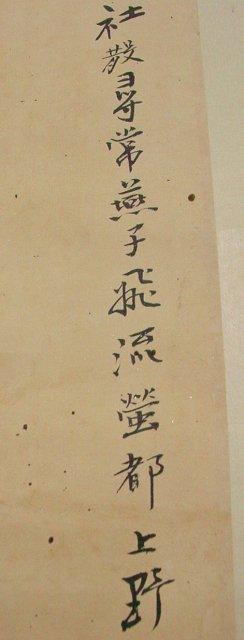 社散尋常燕子飛流螢都上野